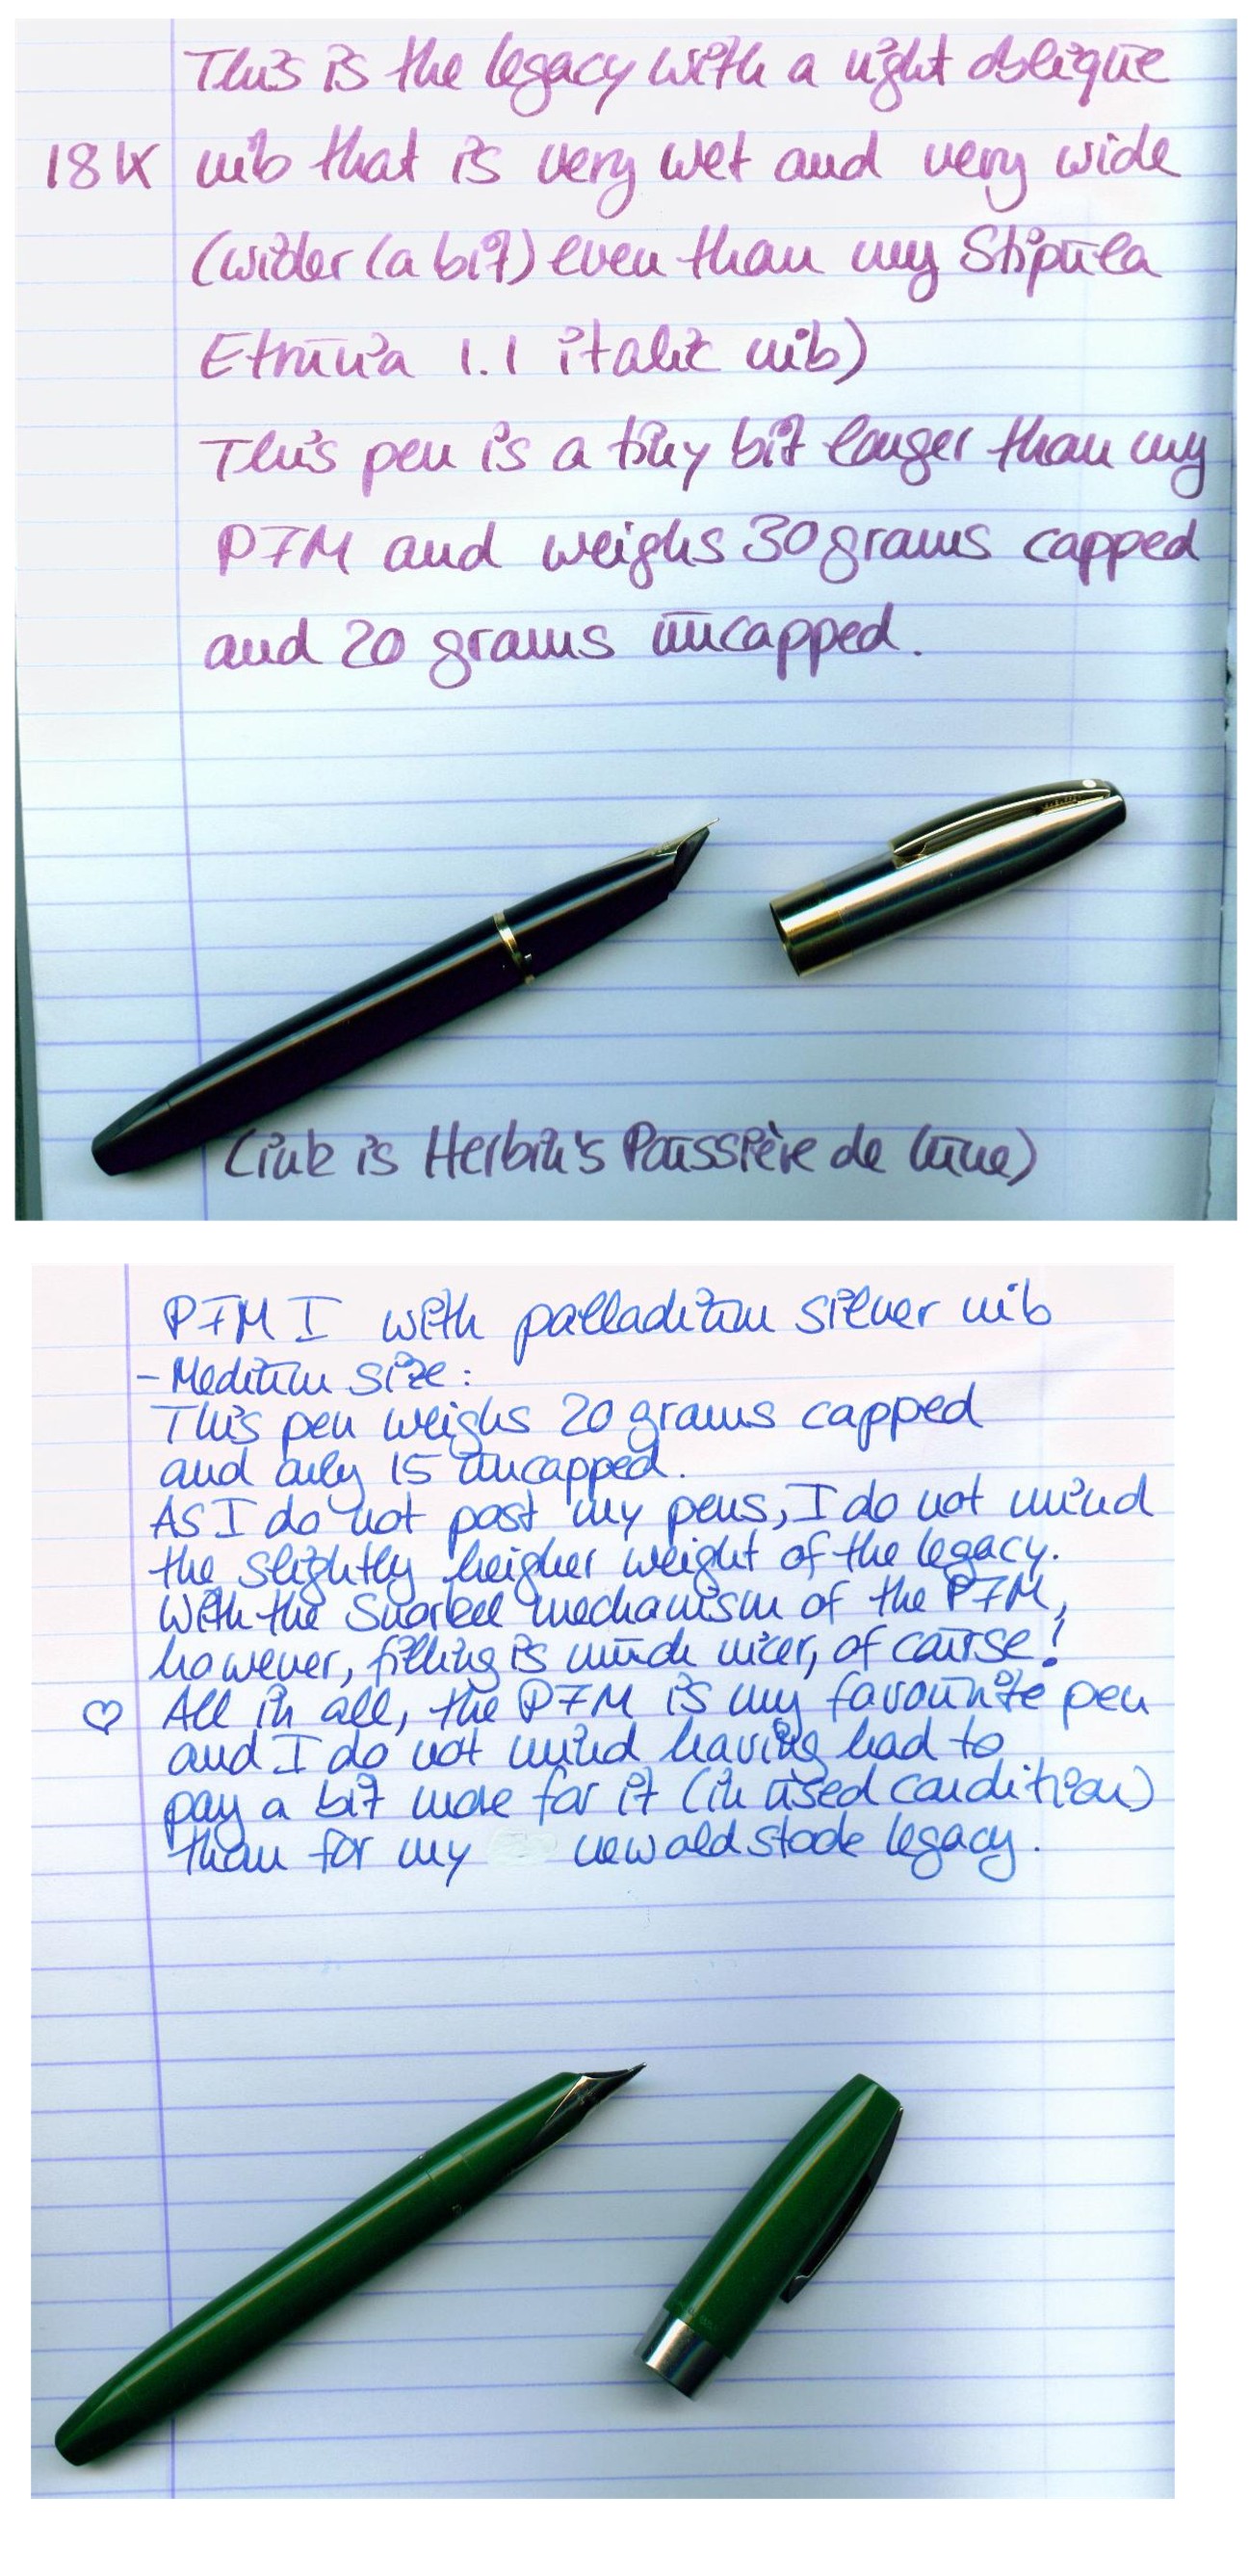 This is the legacy with a right oblique
18K nib that is very wet and very wide
(wider (a bit) even than my Stipula
Etruria 1.1 italic nib)
This pen is a tiny bit longer than my
PFM and weighs 30 grams capped
and 20 grams uncapped.
(ink is Herbin's Poussière de lune)
PFM I with palladium silver nib
- Medium size:
This pen weighs 20 grams capped
and only 15 uncapped.
As I do not post my pens, I do not mind
the slightly heigher weight of the legacy.
With the Snorkel mechanism of the PFM,
however, filling is much nicer, of course!
♡ All in all, the PFM is my favourite pen
and I do not mind having had to
pay a bit more for it (in used condition)
than for my new old stock legacy.